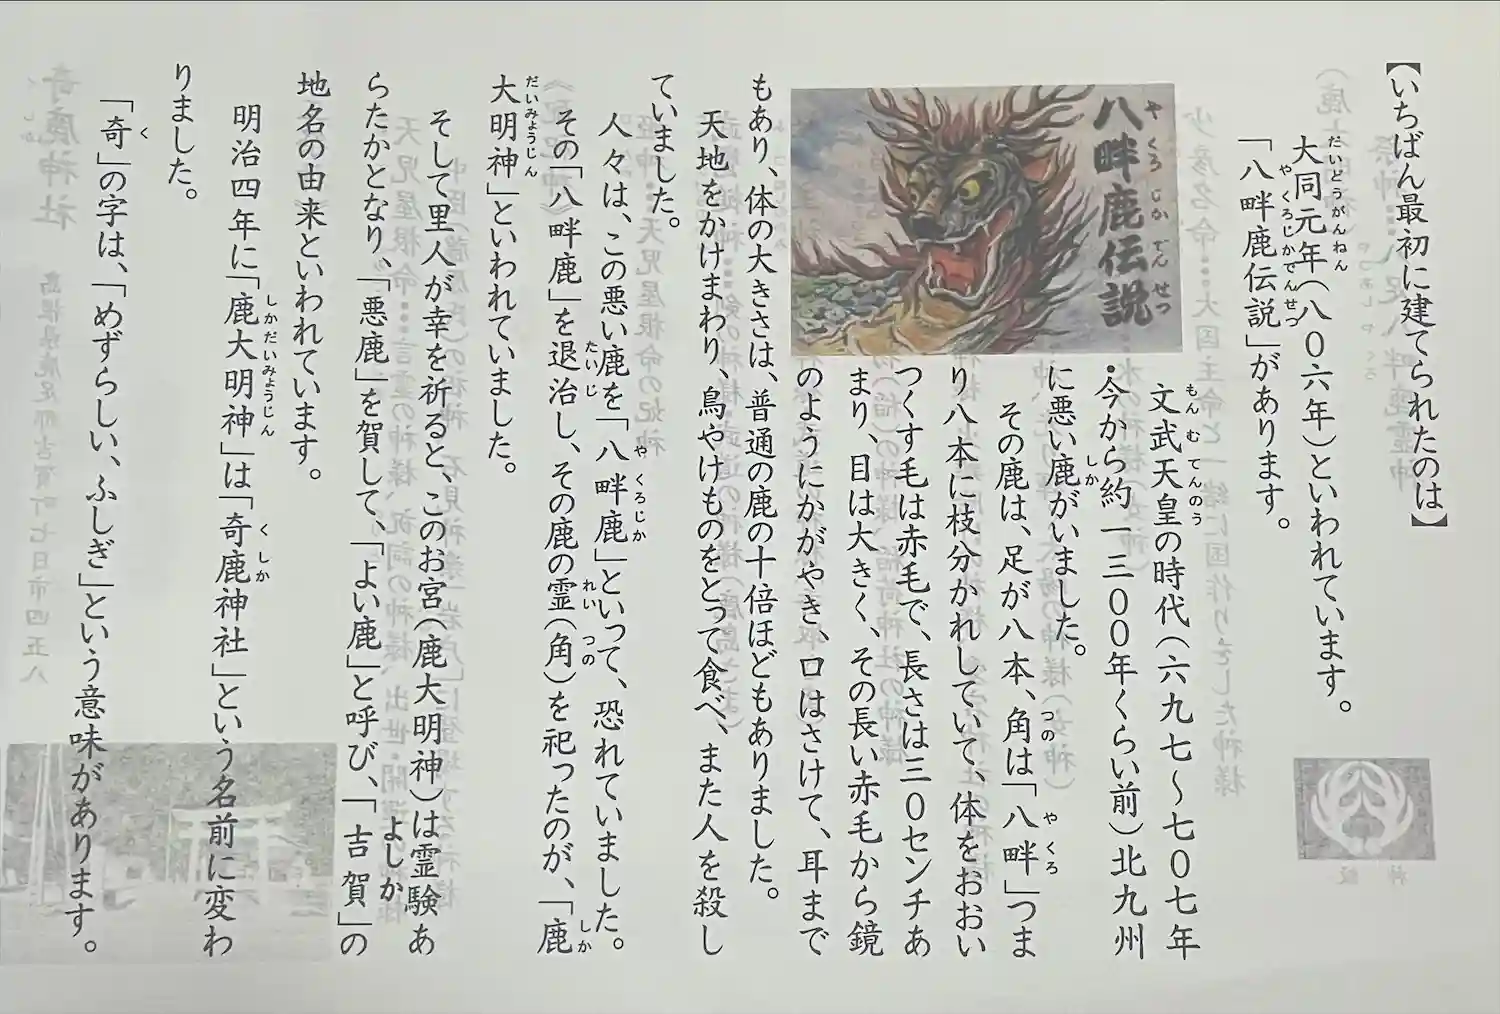 【いちばん最初に建てられたのは】
大同元年(八〇六年)といわれています。
「八畔鹿伝説」があります。
八畔鹿伝説
やくろじかでんせつ
文武天皇の時代(六九七〜七〇七年
・今から約一三〇〇年くらい前)北九州
に悪い鹿がいました。
その鹿は、足が八本、角は「八畔」つま
り八本に枝分かれしていて、体をおおい
つくす毛は赤毛で、長さは三〇センチあ
まり、目は大きく、その長い赤毛から鏡
のようにかがやき、口はさけて、耳まで
もあり、体の大きさは、普通の鹿の十倍ほどもありました。
天地をかけまわり、鳥やけものをとって食べ、また人を殺し
ていました。
人々は、この悪い鹿を「八畔鹿」といって、恐れていました。
その「八畔鹿」を退治し、その鹿の霊(角)を祀ったのが、「鹿
大明神」といわれていました。
そして里人が幸を祈ると、このお宮(鹿大明神)は霊験あ
らたかとなり、「悪鹿」を賀して、「よい鹿」と呼び、「吉賀」の
地名の由来といわれています。
明治四年に「鹿大明神」は「奇鹿神社」という名前に変わ
りました。
「奇」の字は、「めずらしい、ふしぎ」という意味があります。